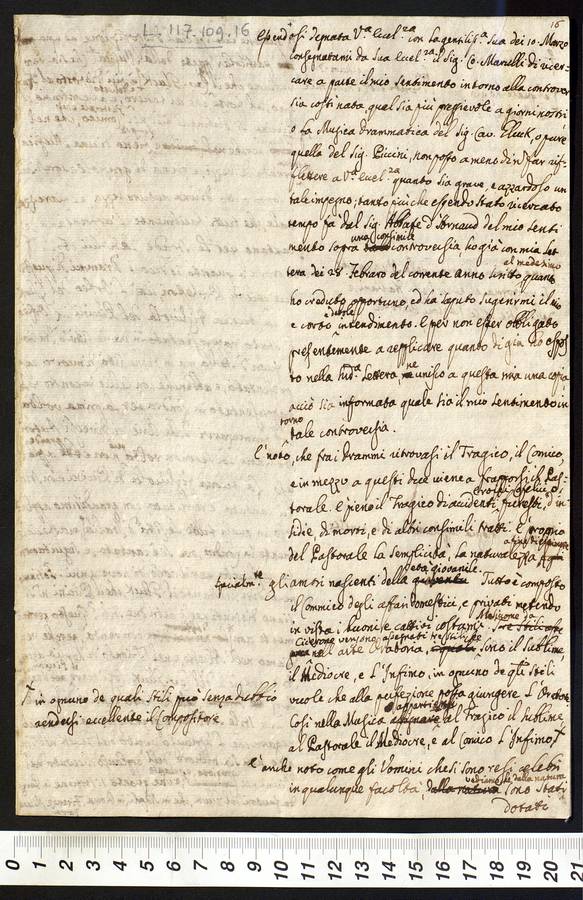 L. 117.109.16
16
Essendosi degnata V.ª Eccel.ᶻᵃ con la gentiliss.ª Sua dei 10. Marzo
consegnatami da Sua Eccel.ᶻᵃ il Sig. Co. Marulli di ricer-
care a parte il mio Sentimento intorno alla controver-
sia costì nata, qual sia più pregievole a giorni nostri
o la Musica drammatica del Sig. Cav. Gluck, o pure
quella del Sig. Piccini, non posso a meno di far rif-
lettere a V.ª Eccel.ᶻᵃ quanto sia grave, e azzardoso un
tale impegno; tanto più che essendo stato ricercato
tempo fà dal Sig. Abbate d'Arnaud del mio Senti
mento sopra una consimile controversia, ho già con mia Let-
tera dei 28 Febraro del corrente anno al medesimo quanto
ho creduto opportuno, ed ha saputo sugerirmi il mio
e corto e debole intendimento. E per non esser obbligato
presentemente a replicare quanto di già ho espos
to nella sud.ª Lettera, ne unisco a questa mia una copia
acciò sia informata quale sia il mio Sentimento in
torno
tale controversia.
È noto, che frai drammi ritrovasi il Tragico, il Comico,
e in mezzo a questi due viene a frapporsi il Pas-
torale. È pieno il Tragico di accidenti funesti, d'in
sidie, di morti, e di altri consimili tratti. È proprio
del Pastorale la Semplicità, la naturalezza
specialm.ᵗᵉ gli amori nascenti della età giovanile. Tutto è composto
il Commico degli affari domestici, e privati mettendo
in vista i buoni, e cattivi costumi.
Cicerone
nell'arte Oratoria, sono il Sublime,
il Mediocre, e l'Infimo, in ognuno de q.ᵗⁱ Stili
vuole che alla perfezione possa giungere l'Oratore
Così nella Musica appartiene al Tragico il Sublime,
al Pastorale il Mediocre, e al Comico l'Infimo,
in ognuno de quali Stili può senza dubbio
rendersi eccellente il Compositore
È anche noto come gli Uomini che si sono resi celebri
in qualunque facoltà, vediamo che dalla natura sono stati
dotati
0 1 2 3 4 5 6 7 8 9 10 11 12 13 14 15 16 17 18 19 20 21